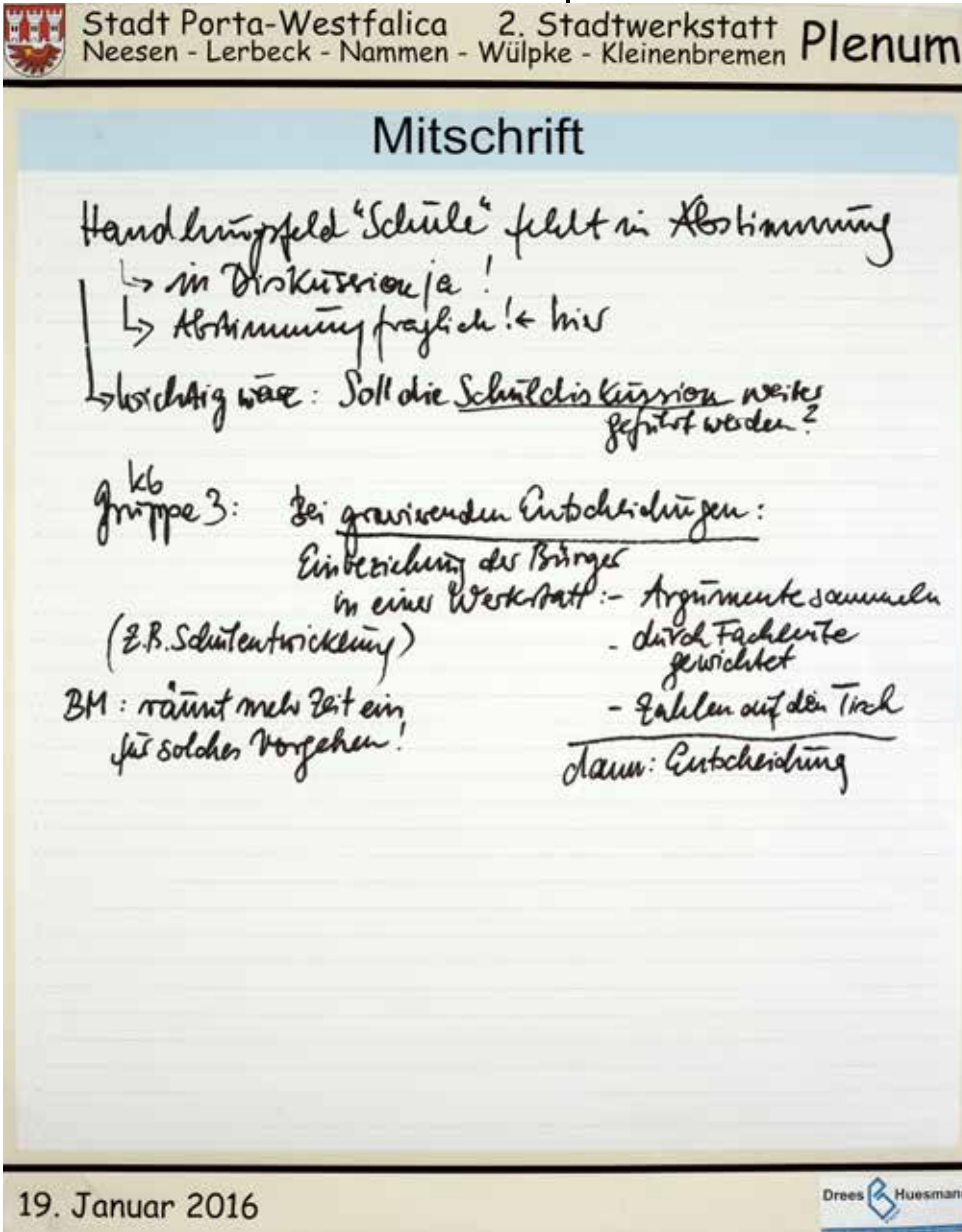 Stadt Porta-Westfalica 2. Stadtwerkstatt Plenum
Neesen - Lerbeck - Nammen - Wülpke - Kleinenbremen
Mitschrift
Handlungsfeld "Schule" fehlt in Abstimmung
↳ in Diskussion ja!
↳ Abstimmung fraglich! ← hier
↳ wichtig wäre: Soll die Schuldiskussion weiter
geführt werden?
kb
Gruppe 3: Bei gravierenden Entscheidungen:
Einbeziehung der Bürger
in einer Werkstatt: - Argumente sammeln
(z.B. Schulentwicklung) - durch Fachleute
gewichtet
BM: räumt mehr Zeit ein - Zahlen auf den Tisch
für solches Vorgehen!
dann: Entscheidung
19. Januar 2016
Drees Huesmann